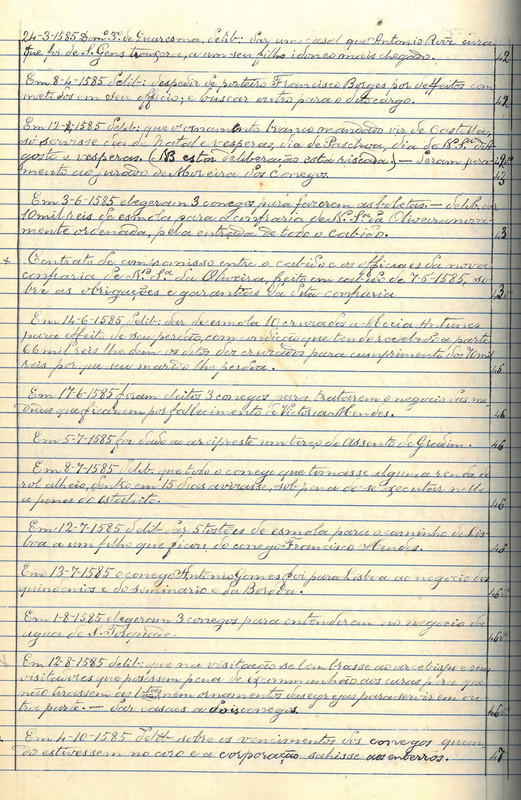 24-3-1585 Dom.º 3.º de Quaresma, delib: dar um casal que Antonio
que foi de S. Gens trouxera, a um seu filho idoneo mais chegado. 42
Em 8-4-1585 delib: despedir de porteiro Francisco Borges por defeitos com
metidos em seu officio, e buscar outro para o dito cargo. 42
Em 12-8-1585 delib: que o ornamento branco mandado vir de Castella,
só servisse dia de Natal e vesperas, dia de Paschoa, dia de N.ª S.ª de
gosto e vesperas. (NB esta deliberação está riscada) — deram jura
mento ao jurado de Moreira dos Conegos. 43
Em 3-6-1585 elegeram 3 conegos para fazerem as — delib: dar
10 mil reis de esmola para a confraria de N.ª Sr.ª da Oliveira nova
mente ordenada, pela entrada de todo o cabido. 43
Contrato de compromisso entre o cabido e os officiaes da nova
confraria de N.ª S.ª da Oliveira, feito em cabido de 7-5-1585, so
bre as obrigações e garantias da dita confraria
Em 14-6-1585 delib: dar de esmola 10 cruzados a Mecia Antunes
para effeito de seu perdão, com condição que tendo recebido a parte
66 mil reis lhe dem os ditos dez cruzados para cumprimento dos mil
reis por que seu marido lhe perdoa. 45
Em 17-6-1585 foram eleitos 3 conegos para tratarem o negocio das me
que ficaram por fallecimento de Victoria Mendes. 46
Em 5-7-1585 foi dado ao arcipreste um terço do Assento de Gradim. 46
Em 8-7-1585 delib: que todo o conego que tomasse alguma renda do
rol alheio, dentro em 15 dias avisasse, sob pena de se executar nelle
a pena do estatuto. 46
Em 12-7-1585 delib: dar 5 tostões de esmola para o caminho de Lis
boa a um filho que ficou do conego Francisco Mendes.
Em 13-7-1585 o conego Antonio Gomes foi para Lisboa ao negocio dos
quindenios e do seminario e da Borba.
Em 1-8-1585 elegeram 3 conegos para entenderem no negocio da
agua de S. Torquade. 46
Em 12-8-1585 delib: que na visitação se lembrasse ao arcebispo e seus
visitadores que posessem pena de excommunhão aos curas para que
não tirassem nem ornamentos das egrejas para servirem em ou
tra parte. — Dar casaes a dois conegos. 46
Em 4-10-1585 delib: sobre os vencimentos dos conegos quan
do estivessem no coro e a corporação sahisse aos enterros. 47